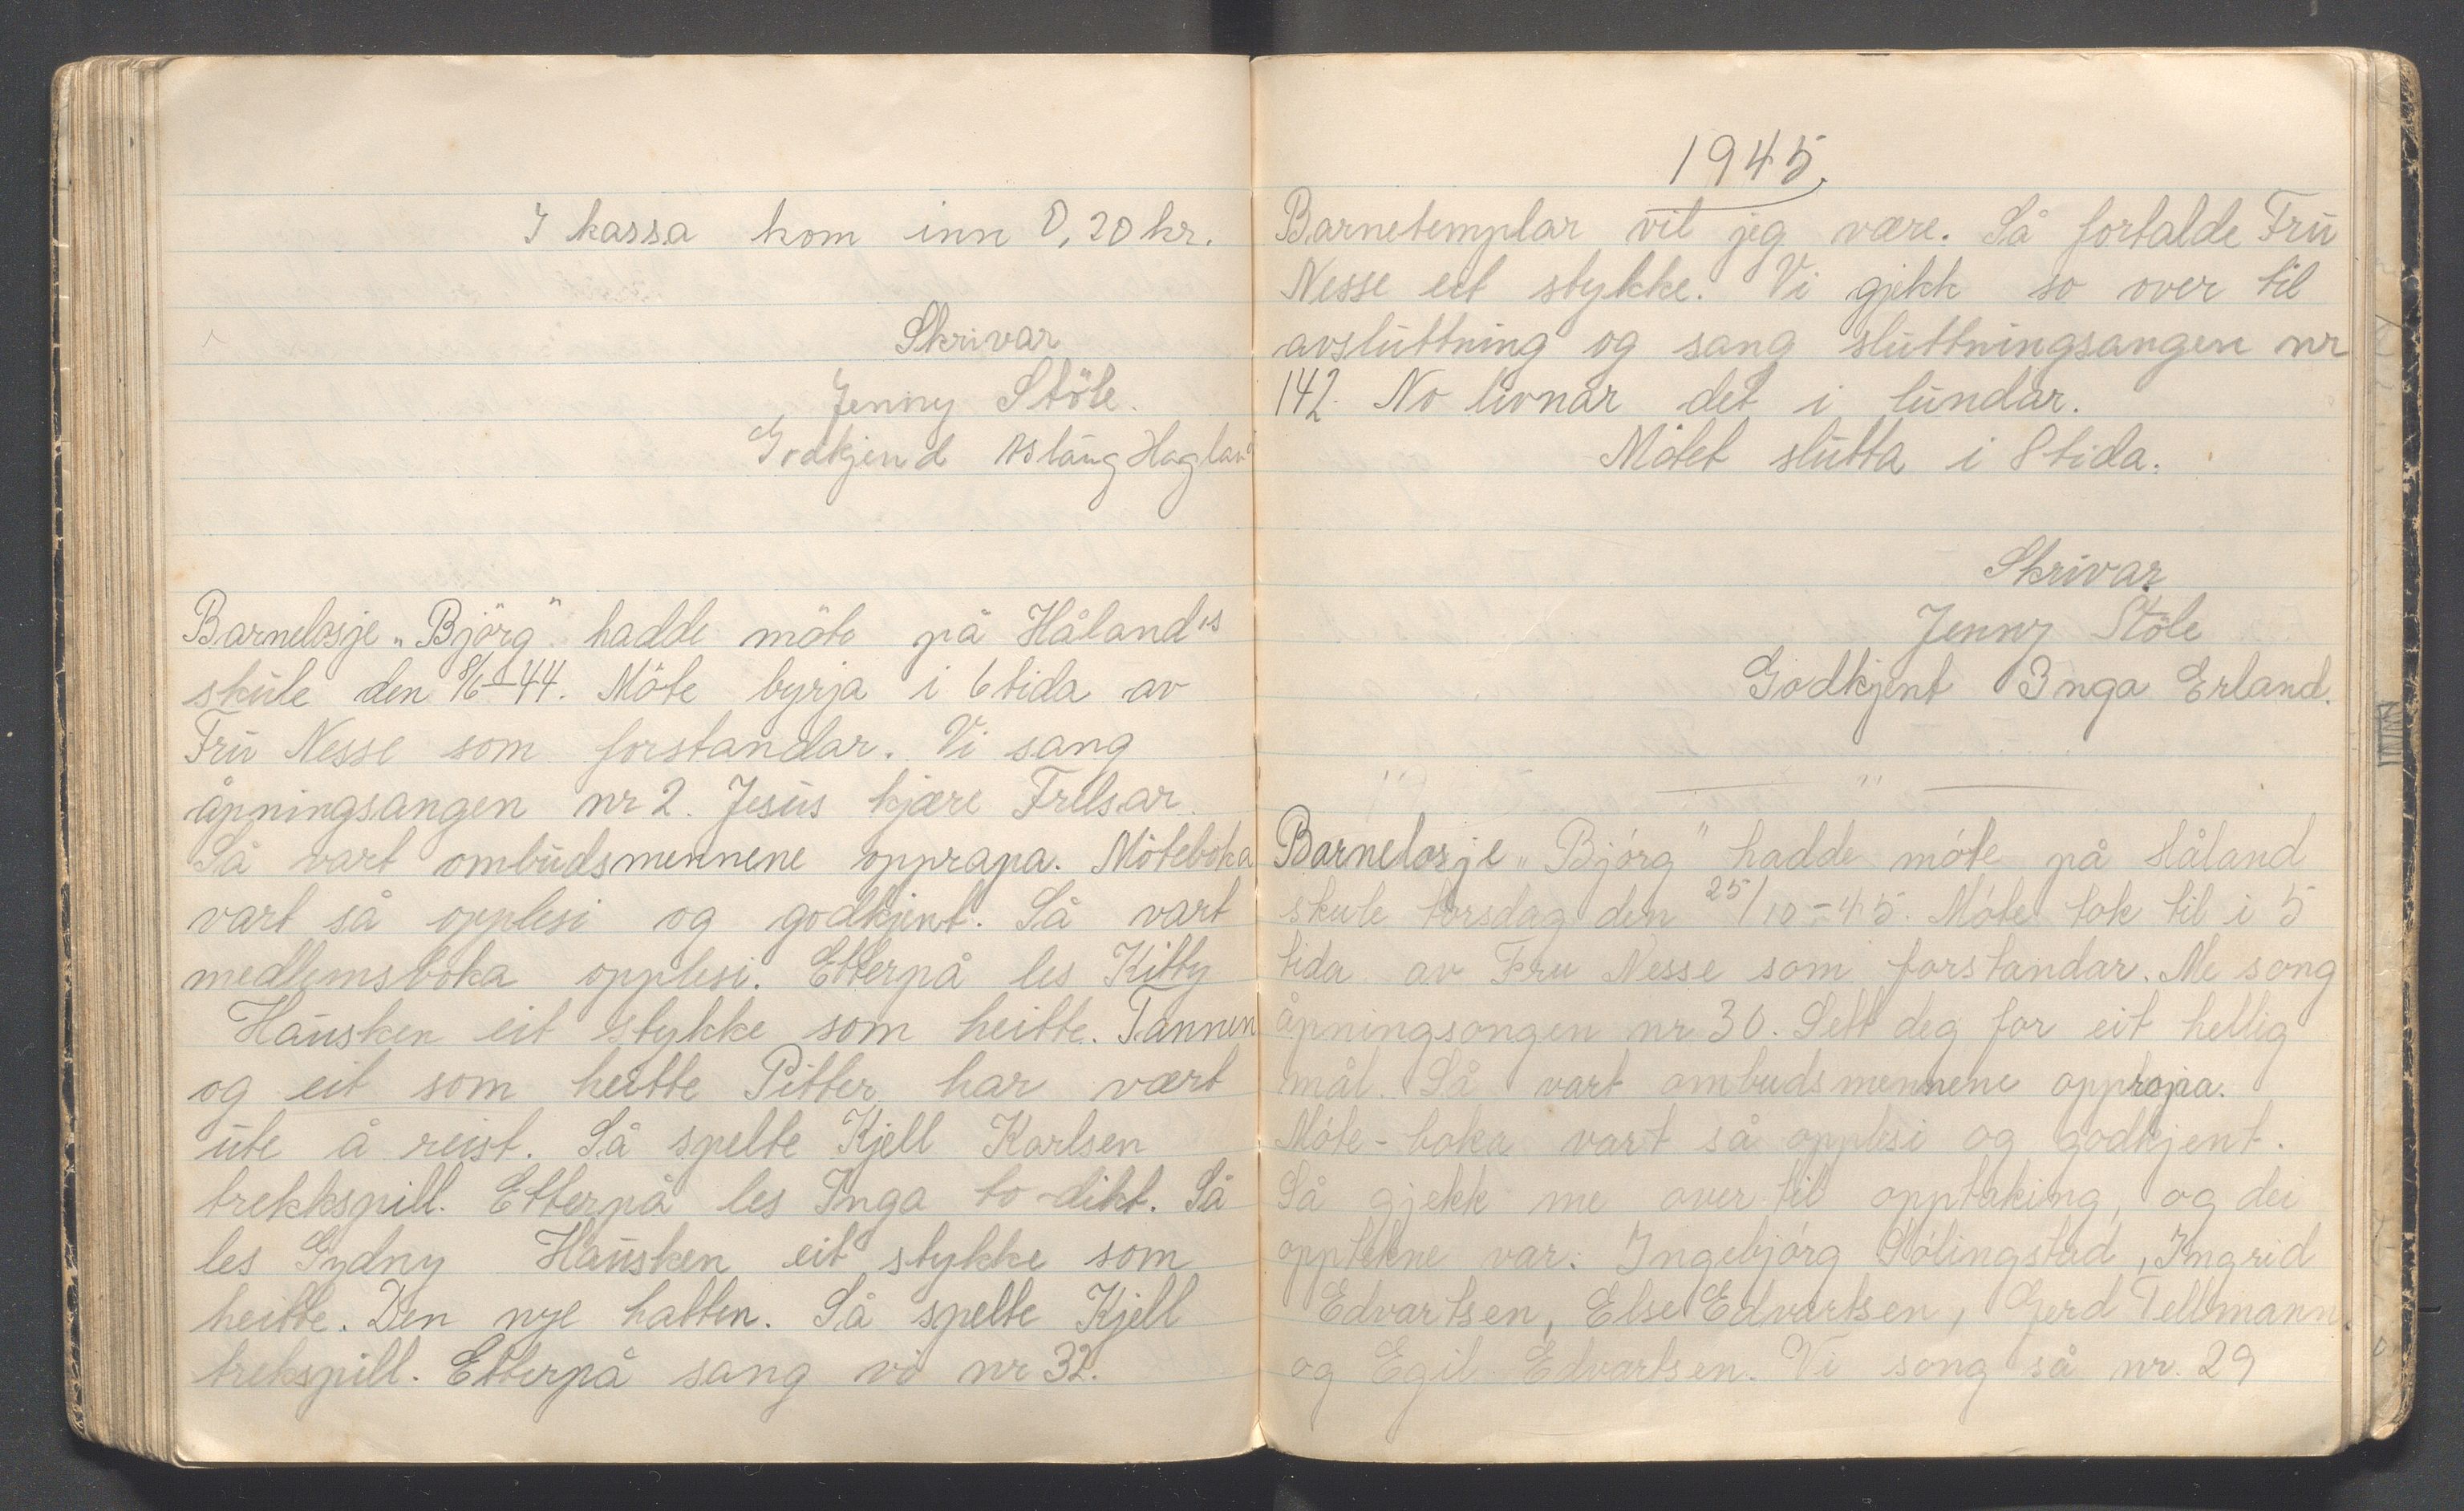 I kassa kom inn 0,20 kr.
Skrivar
Jenny Støle.
Godkjend Aslaug Hagland
Barnelosje „Björg" hadde möte på Håland's
skule den 8/6-44. Möte byrja i 6 tida av
Fru Nesse som forstandar. Vi sang
åpningsangen nr 2. Jesus kjære Frelsar.
Så vart ombudsmennene opprapa. Möteboka
vart så opplesi og godkjent. Så vart
medlemsboka opplesi. Etterpå les Kitty
Hausken eit stykke som heitte. Tannen
og eit som heitte Pitter har vært
ute å reist. Så spelte Kjell Karlsen
trekkspill. Etterpå les Inga to dikt. Så
les Gydny Hausken eit stykke som
heitte. Den nye hatten. Så spelte Kjell
trekspill. Etterpå sang vi nr 32.
1945.
Barnetemplar vil jeg være. Så fortalde Fru
Nesse eit stykke. Vi gjekk so over til
avsluttning og sang sluttningsangen nr
142. No livnar det i lundar.
Møtet slutta i 8 tida.
Skrivar
Jenny Støle
Godkjent Inga Erland.
Barnelosje „Bjórg" hadde móte på Håland
skule torsdag den 25/10-45. Móte tok til i 5
tida av Fru Nesse som forstandar. Me song
åpningsongen nr 30. Sett deg for eit hellig
mål. Så vart ombudsmennene oppropa.
Móte-boka vart så opplesi og godkjent.
Så gjekk me over til opptaking, og dei
opptekne var: Ingebjórg Stólingstad, Ingrid
Edvartsen, Else Edvartsen, Gerd Tellmann
og Egil Edvartsen. Vi song så nr. 29